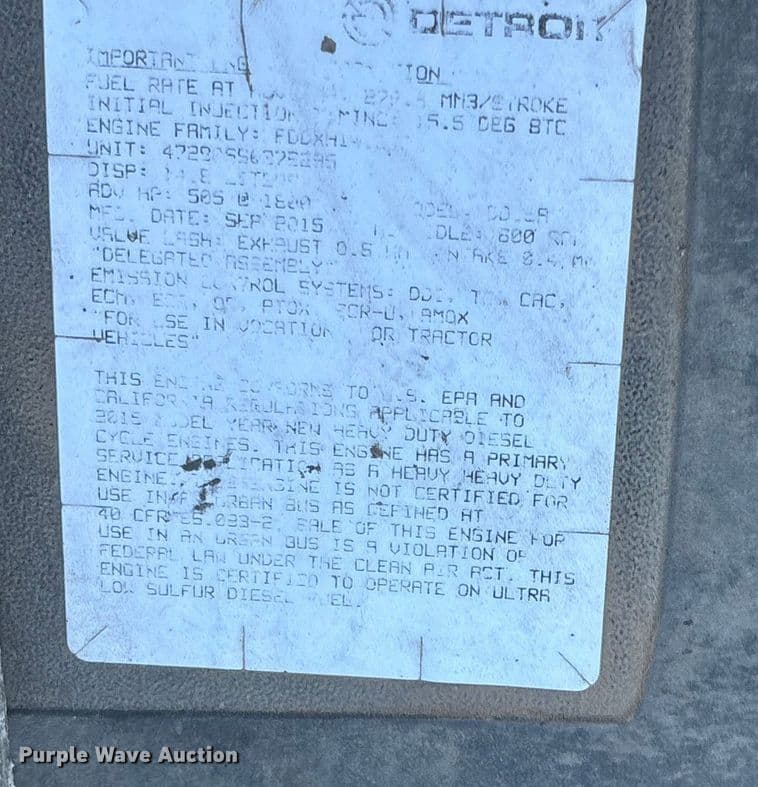 DETROIT
IMPORTANT
FUEL RATE AT MM3/STROKE
INITIAL INJECTION 5.5 DEG BTC
ENGINE FAMILY:
UNIT:
DISP:
ADV HP: 505 @ 1800
MFG. DATE: SEP 2015 IDLE: 600 RPM
VALVE LASH: EXHAUST INTAKE
"DELEGATED ASSEMBLY"
EMISSION CONTROL SYSTEMS: CAC,
ECM, AMOX
"FOR USE IN VOCATIONAL OR TRACTOR
VEHICLES"
THIS ENGINE CONFORMS TO U.S. EPA AND
CALIFORNIA REGULATIONS APPLICABLE TO
2015 MODEL YEAR NEW HEAVY DUTY DIESEL
CYCLE ENGINES. THIS ENGINE HAS A PRIMARY
SERVICE APPLICATION AS A HEAVY HEAVY DUTY
ENGINE. THIS ENGINE IS NOT CERTIFIED FOR
USE IN AN URBAN BUS AS DEFINED AT
40 CFR SALE OF THIS ENGINE FOR
USE IN AN URBAN BUS IS A VIOLATION OF
FEDERAL LAW UNDER THE CLEAN AIR ACT. THIS
ENGINE IS CERTIFIED TO OPERATE ON ULTRA
LOW SULFUR DIESEL FUEL.
Purple Wave Auction